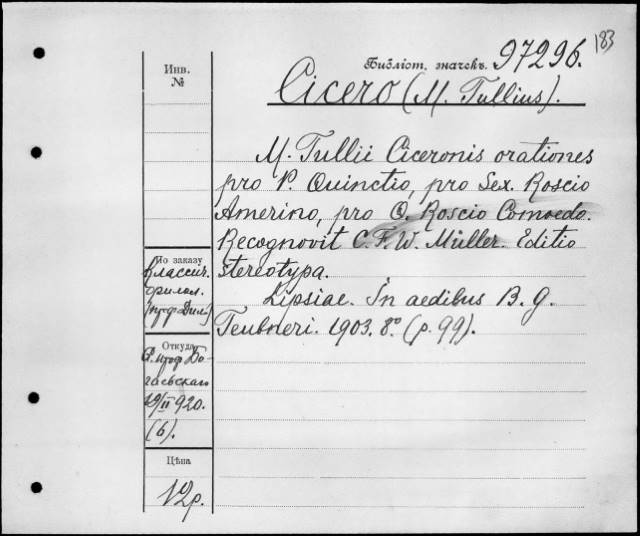 183
Библіот. значекъ. 97296.
Инв.
№
Cicero (M. Tullius).
M. Tullii Ciceronis orationes
pro P. Quinctio, pro Sex. Roscio
Amerino, pro Q. Roscio Comoedo.
Recognovit C. F. W. Müller. Editio
stereotypa.
Lipsiae. In aedibus B. G.
Teubneri. 1903. 8° (p. 99).
По заказу
Классич.
филол.
Откуда
проф. Бо-
гаевскаго
19/II 920.
(6).
Цѣна
12 р.